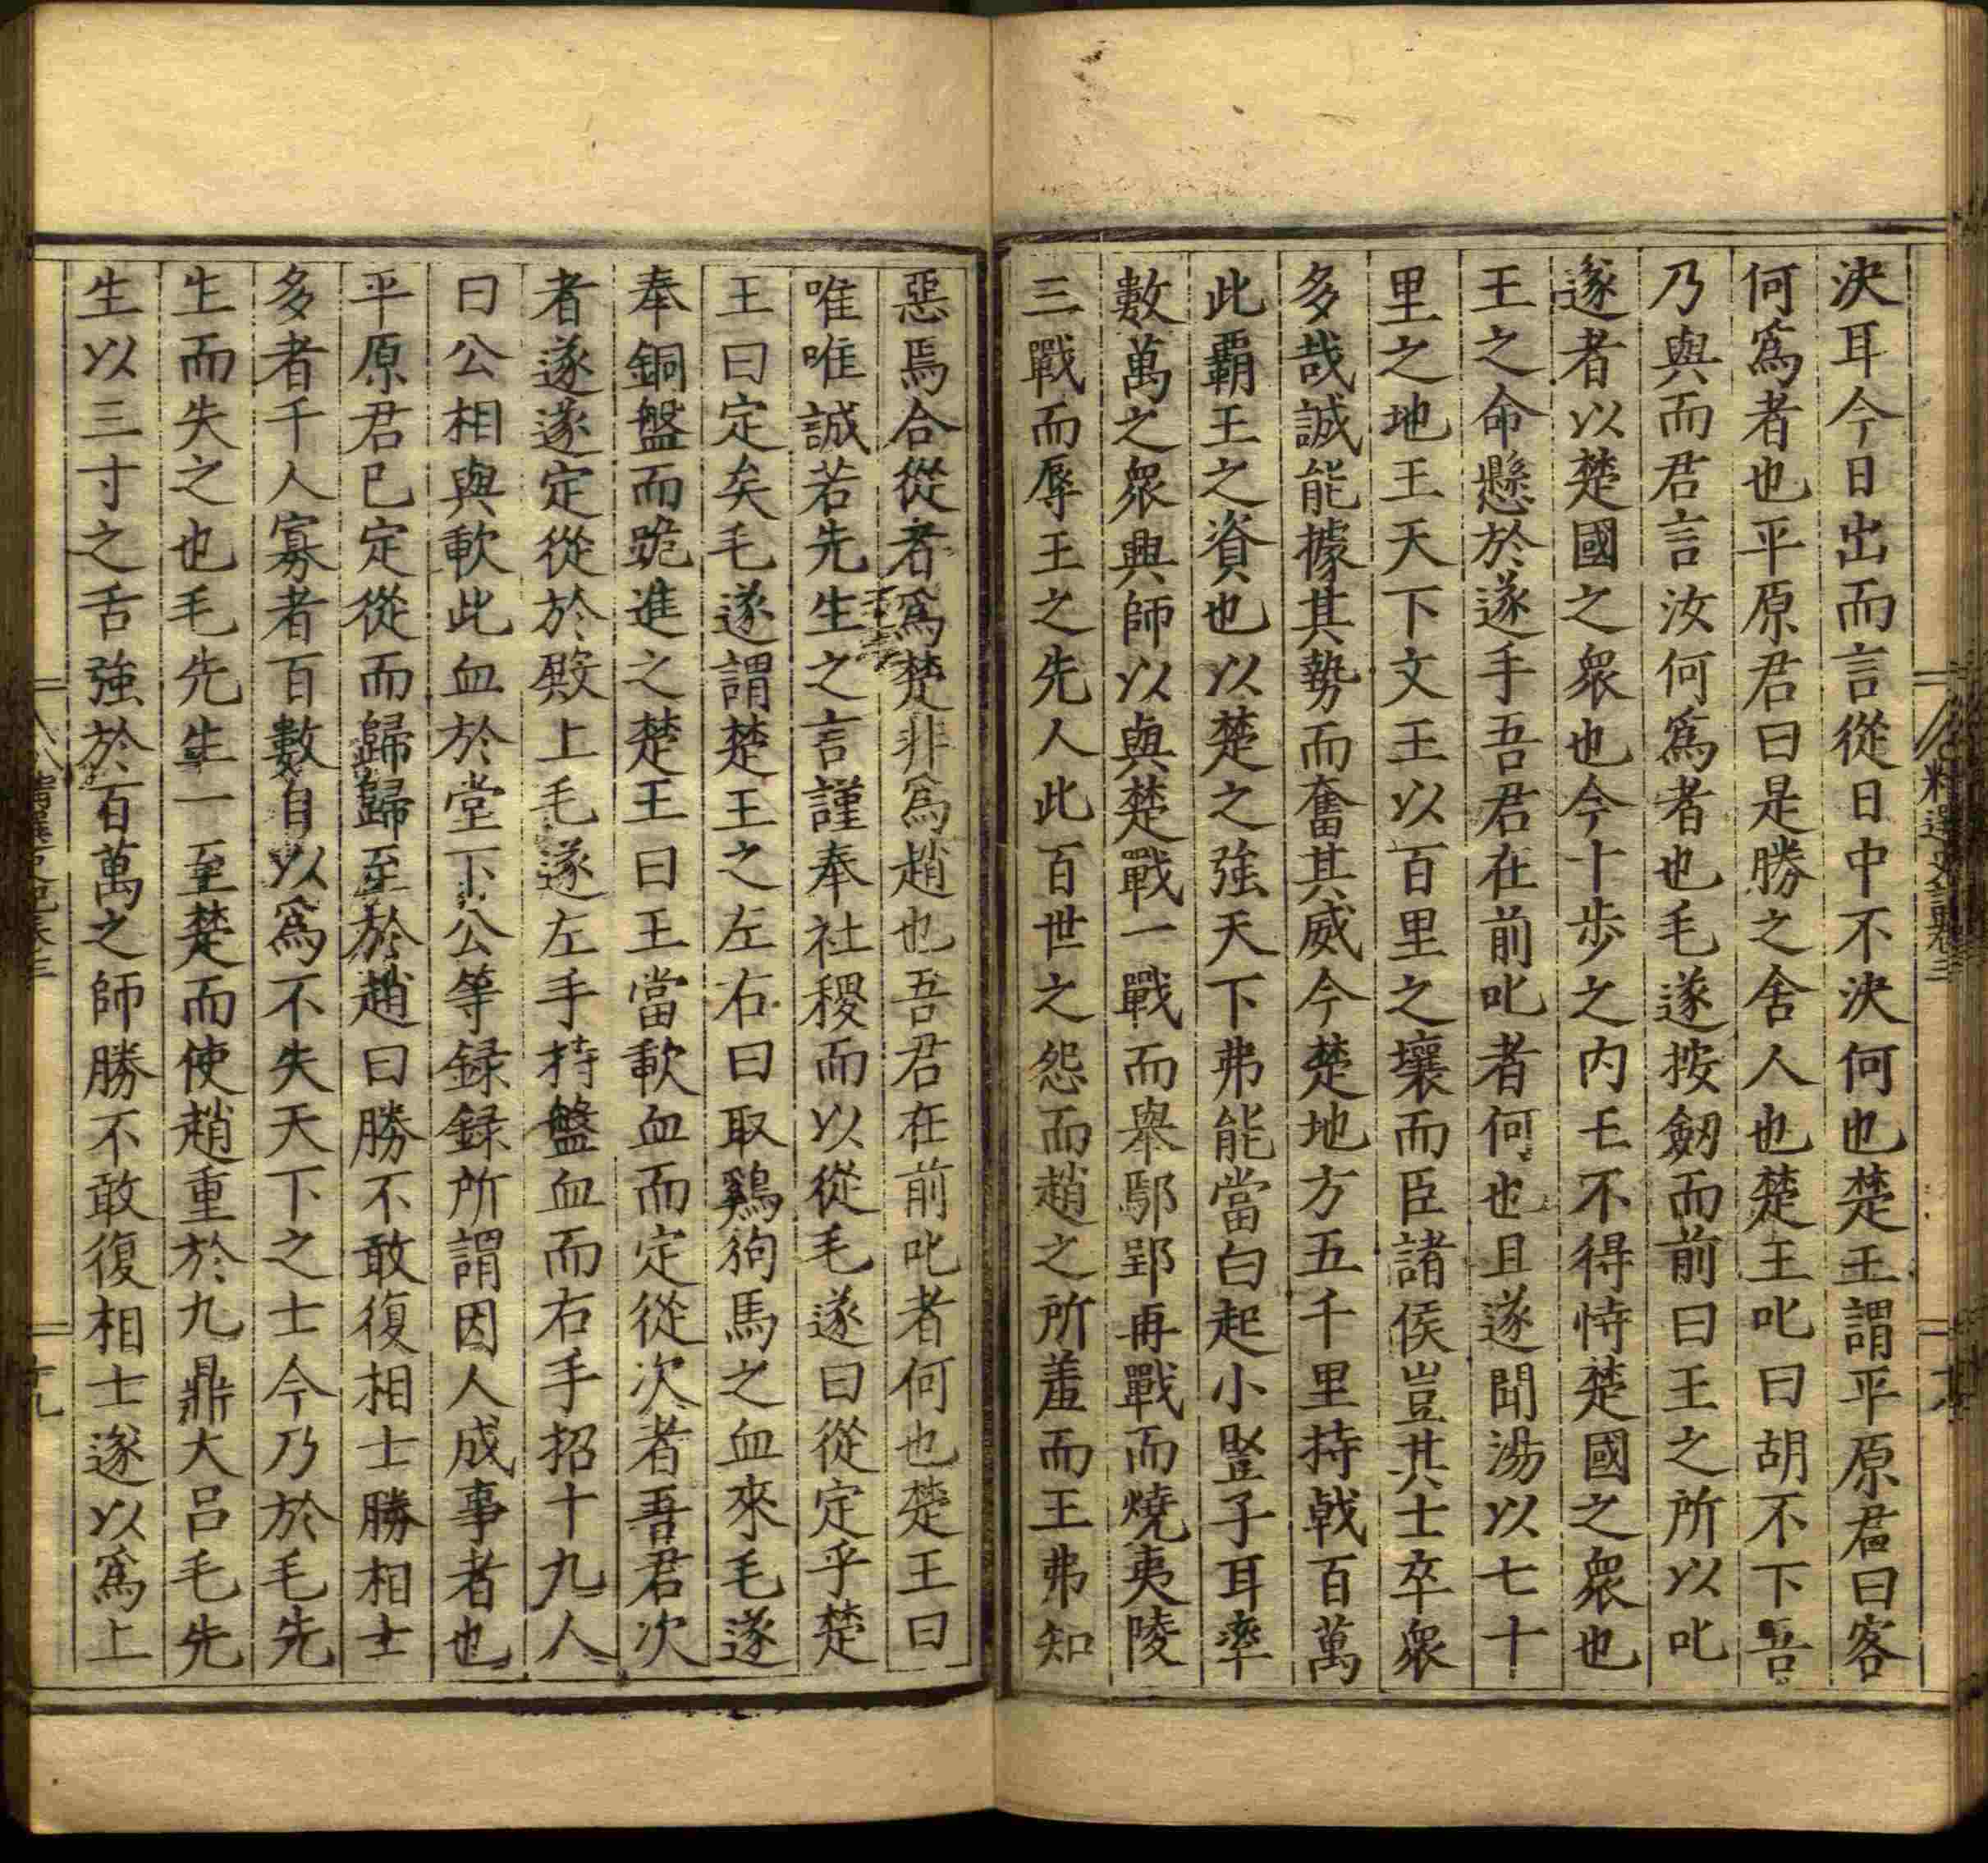 決耳今日出而言從日中不決何也楚王謂平原君曰客
何爲者也平原君曰是勝之舍人也楚王叱曰胡不下吾
乃與而君言汝何爲者也毛遂按劒而前曰王之所以叱
遂者以楚國之衆也今十步之内王不得恃楚國之衆也
王之命懸於遂手吾君在前叱者何也且遂聞湯以七十
里之地王天下文王以百里之壤而臣諸侯豈其士卒衆
多哉誠能據其勢而奮其威今楚地方五千里持戟百萬
此霸王之資也以楚之強天下弗能當白起小豎子耳率
數萬之衆興師以與楚戰一戰而舉鄢郢再戰而燒夷陵
三戰而辱王之先人此百世之怨而趙之所羞而王弗知
惡焉合從者爲楚非爲趙也吾君在前叱者何也楚王曰
唯唯誠若先生之言謹奉社稷而以從毛遂曰從定乎楚
王曰定矣毛遂謂楚王之左右曰取鷄狗馬之血來毛遂
奉銅盤而跪進之楚王曰王當歃血而定從次者吾君次
者遂遂定從於殿上毛遂左手持盤血而右手招十九人
曰公相與歃此血於堂下公等録録所謂因人成事者也
平原君已定從而歸歸至於趙曰勝不敢復相士勝相士
多者千人寡者百數自以爲不失天下之士今乃於毛先
生而失之也毛先生一至楚而使趙重於九鼎大呂毛先
生以三寸之舌強於百萬之師勝不敢復相士遂以爲上